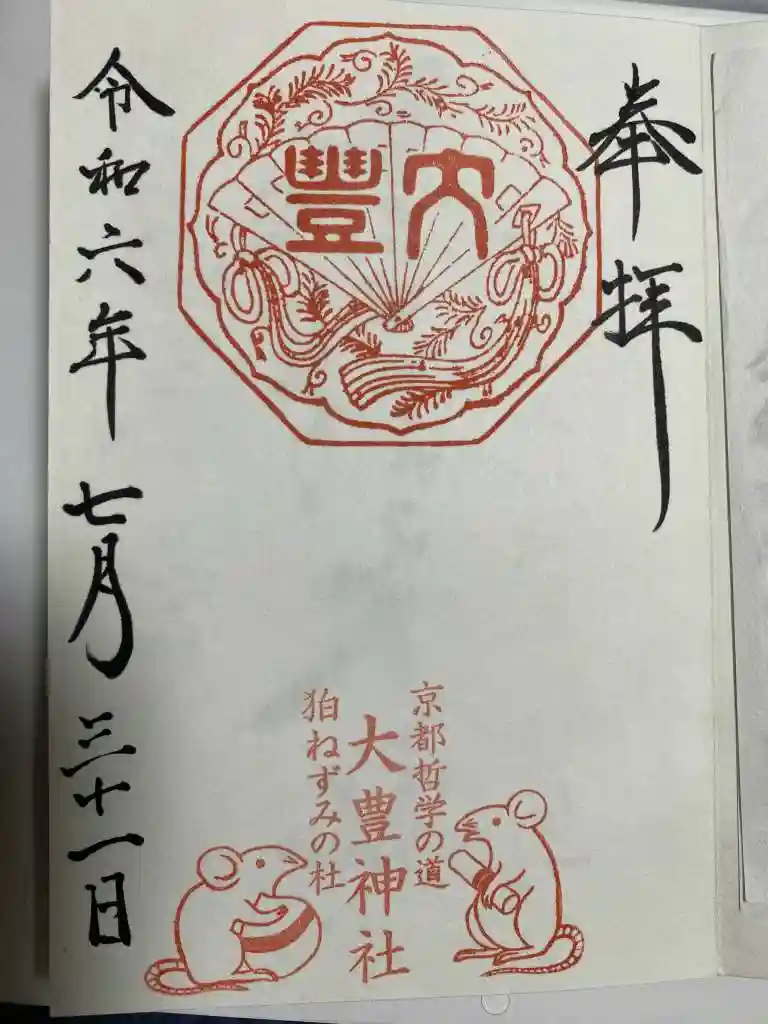 奉拝
大豊
京都哲学の道
大豊神社
狛ねずみの杜
令和六年七月三十一日